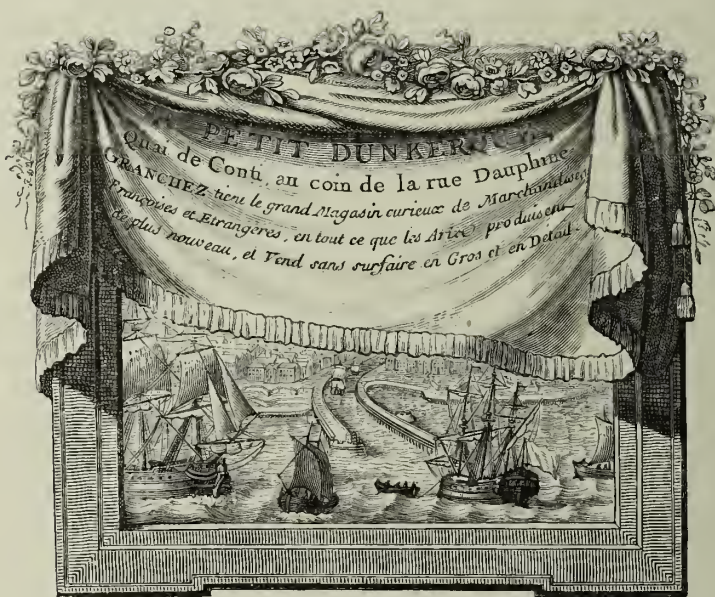 PETIT DUNKER
Quai de Conti, au coin de la rue Dauphine
GRANCHEZ tient le grand Magasin curieux de Marchandises
Françoises et Etrangeres, en tout ce que les Arts produisent
de plus nouveau, et Vend sans surfaire en Gros et en Détail.